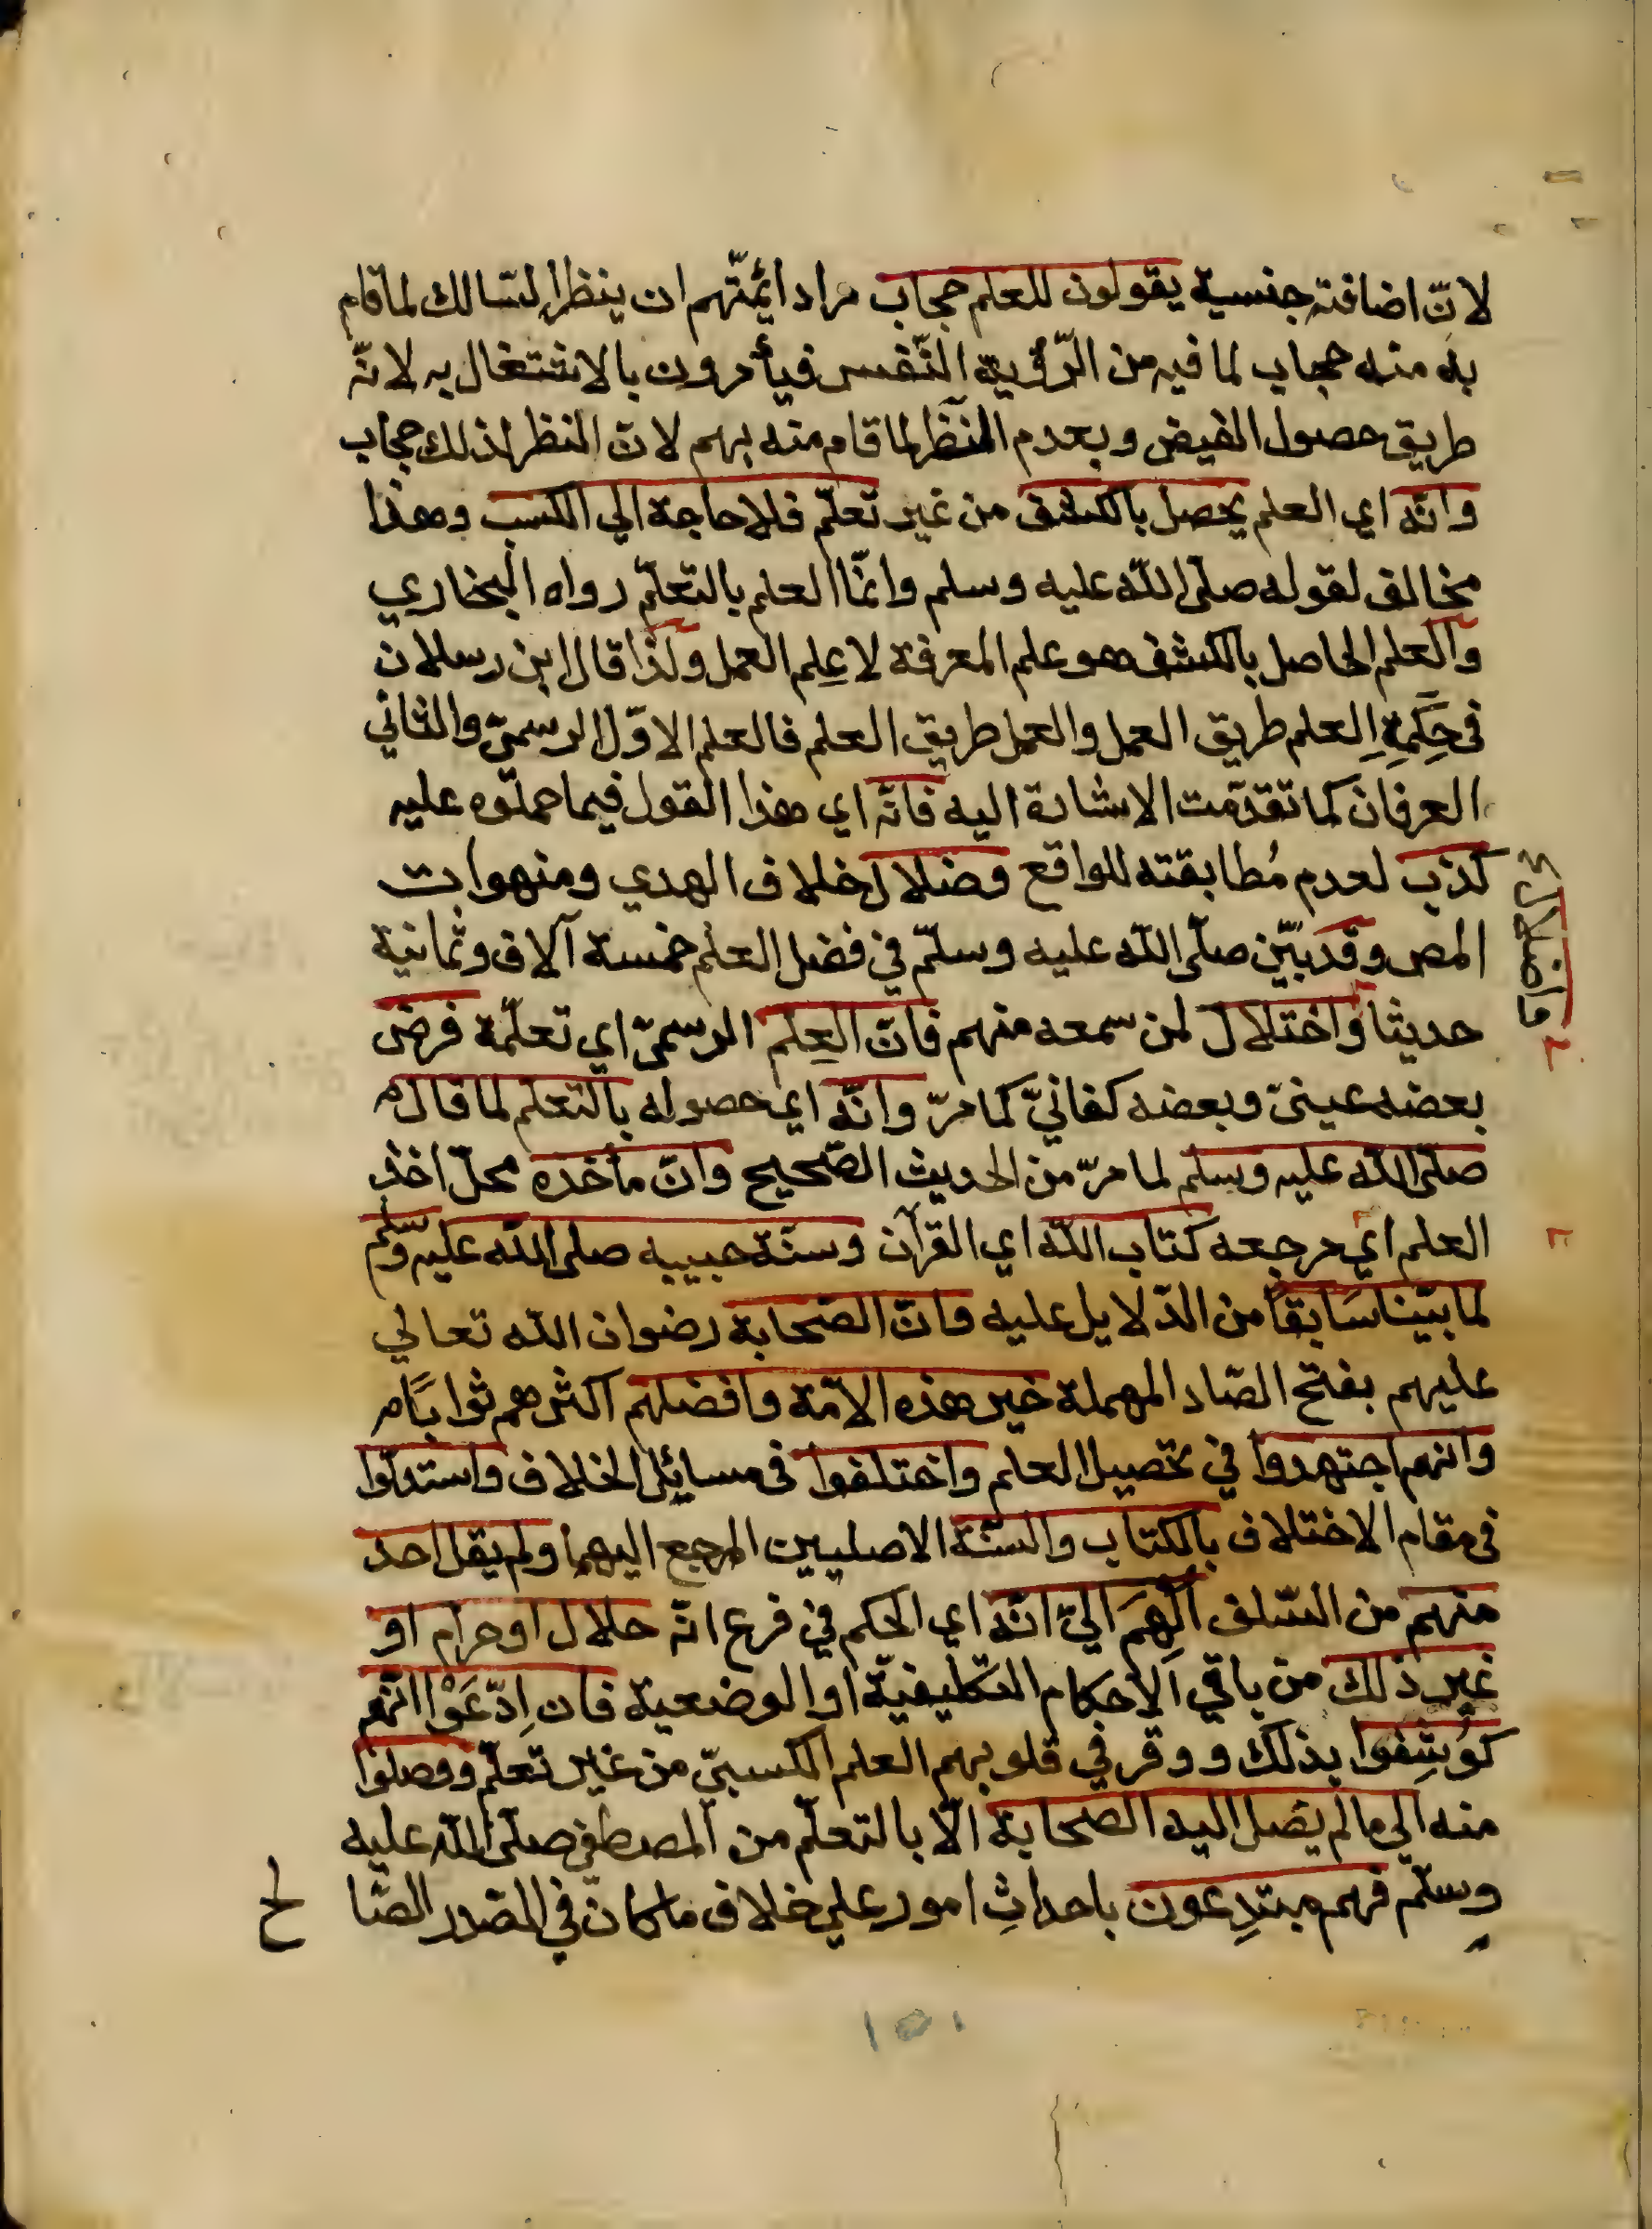 لانّ اضافته جنسية يقولون للعلم حجاب مراد ائمّتهم ان ينظر السالك لما قام
به منه حجاب لما فيه من الرّؤية النّفس فيأمرون بالاشتغال به لانّه
طريق حصول الفيض وبعدم النّظر لما قام منه بهم لانّ النظر لذلك حجاب
وانّه اي العلم يحصل بالكشف من غير تعلّم فلا حاجة الي الكسب وهذا
مخالف لقوله صلّى اللّه عليه وسلم وانّما العلم بالتعلّم رواه البخاري
والعلم الحاصل بالكشف هو علم المعرفة لا عِلم العمل ولذا قال ابن رسلان
في حِكَمِهِ العلم طريق العمل والعمل طريق العلم فالعلم الاوّل الرسميّ والثاني
العرفان كما تقدّمت الاشارة اليه فانّه اي هذا القول فيما حملوه عليه
كذب لعدم مُطابقته للواقع وضلال خلاف الهدي ومنهوات
المص وقد بيّن صلّى اللّه عليه وسلّم في فضل العلم خمسة آلاف وثمانية
حديثا واختلال لمن سمعه منهم فانّ العِلم الرسميّ اي تعلّمه فرض
بعضه عينيّ وبعضه كفائيّ كما مرّ وانّه اي حصوله بالتعلّم لما قال م
صلّى اللّه عليه وسلم لما مرّ من الحديث الصّحيح وانّ مأخذه محلّ اخذ
العلم اي مرجعه كتاب اللّه اي القرآن وسنّة حبيبه صلى اللّه عليه وسلّم
لما بيّنا سَابقاً من الدّلايل عليه وانّ الصّحابة رضوان اللّه تعالي
عليهم بفتح الصّاد المهملة خير هذه الامّة وافضلهم اكثرهم ثوابًا م
وانهم اجتهدوا في تحصيل العلم واختلفوا في مسائل الخلاف واستدلّوا
في مقام الاختلاف بالكتاب والسّنّة الاصليين المرجع اليهما ولم يقل احد
منهم من السّلف اُلهِمَ اليّ انّه اي الحكم في فرع انّه حلال او حرام او
غير ذلك من باقي الاحكام التكليفيّة او الوضعية فان اِدّعَوْا انّهم
كُوشِفوا بذلك ووقر في قلوبهم العلم الكسبيّ من غير تعلّم ووصلوا
منه الي ما لم يصل اليه الصّحابة الّا بالتعلّم من المصطفي صلّى اللّه عليه
وسلّم فهم مبتدِعون باحداثِ امور علي خلاف ما كان في الصّدر الصّا
لح
واضلال